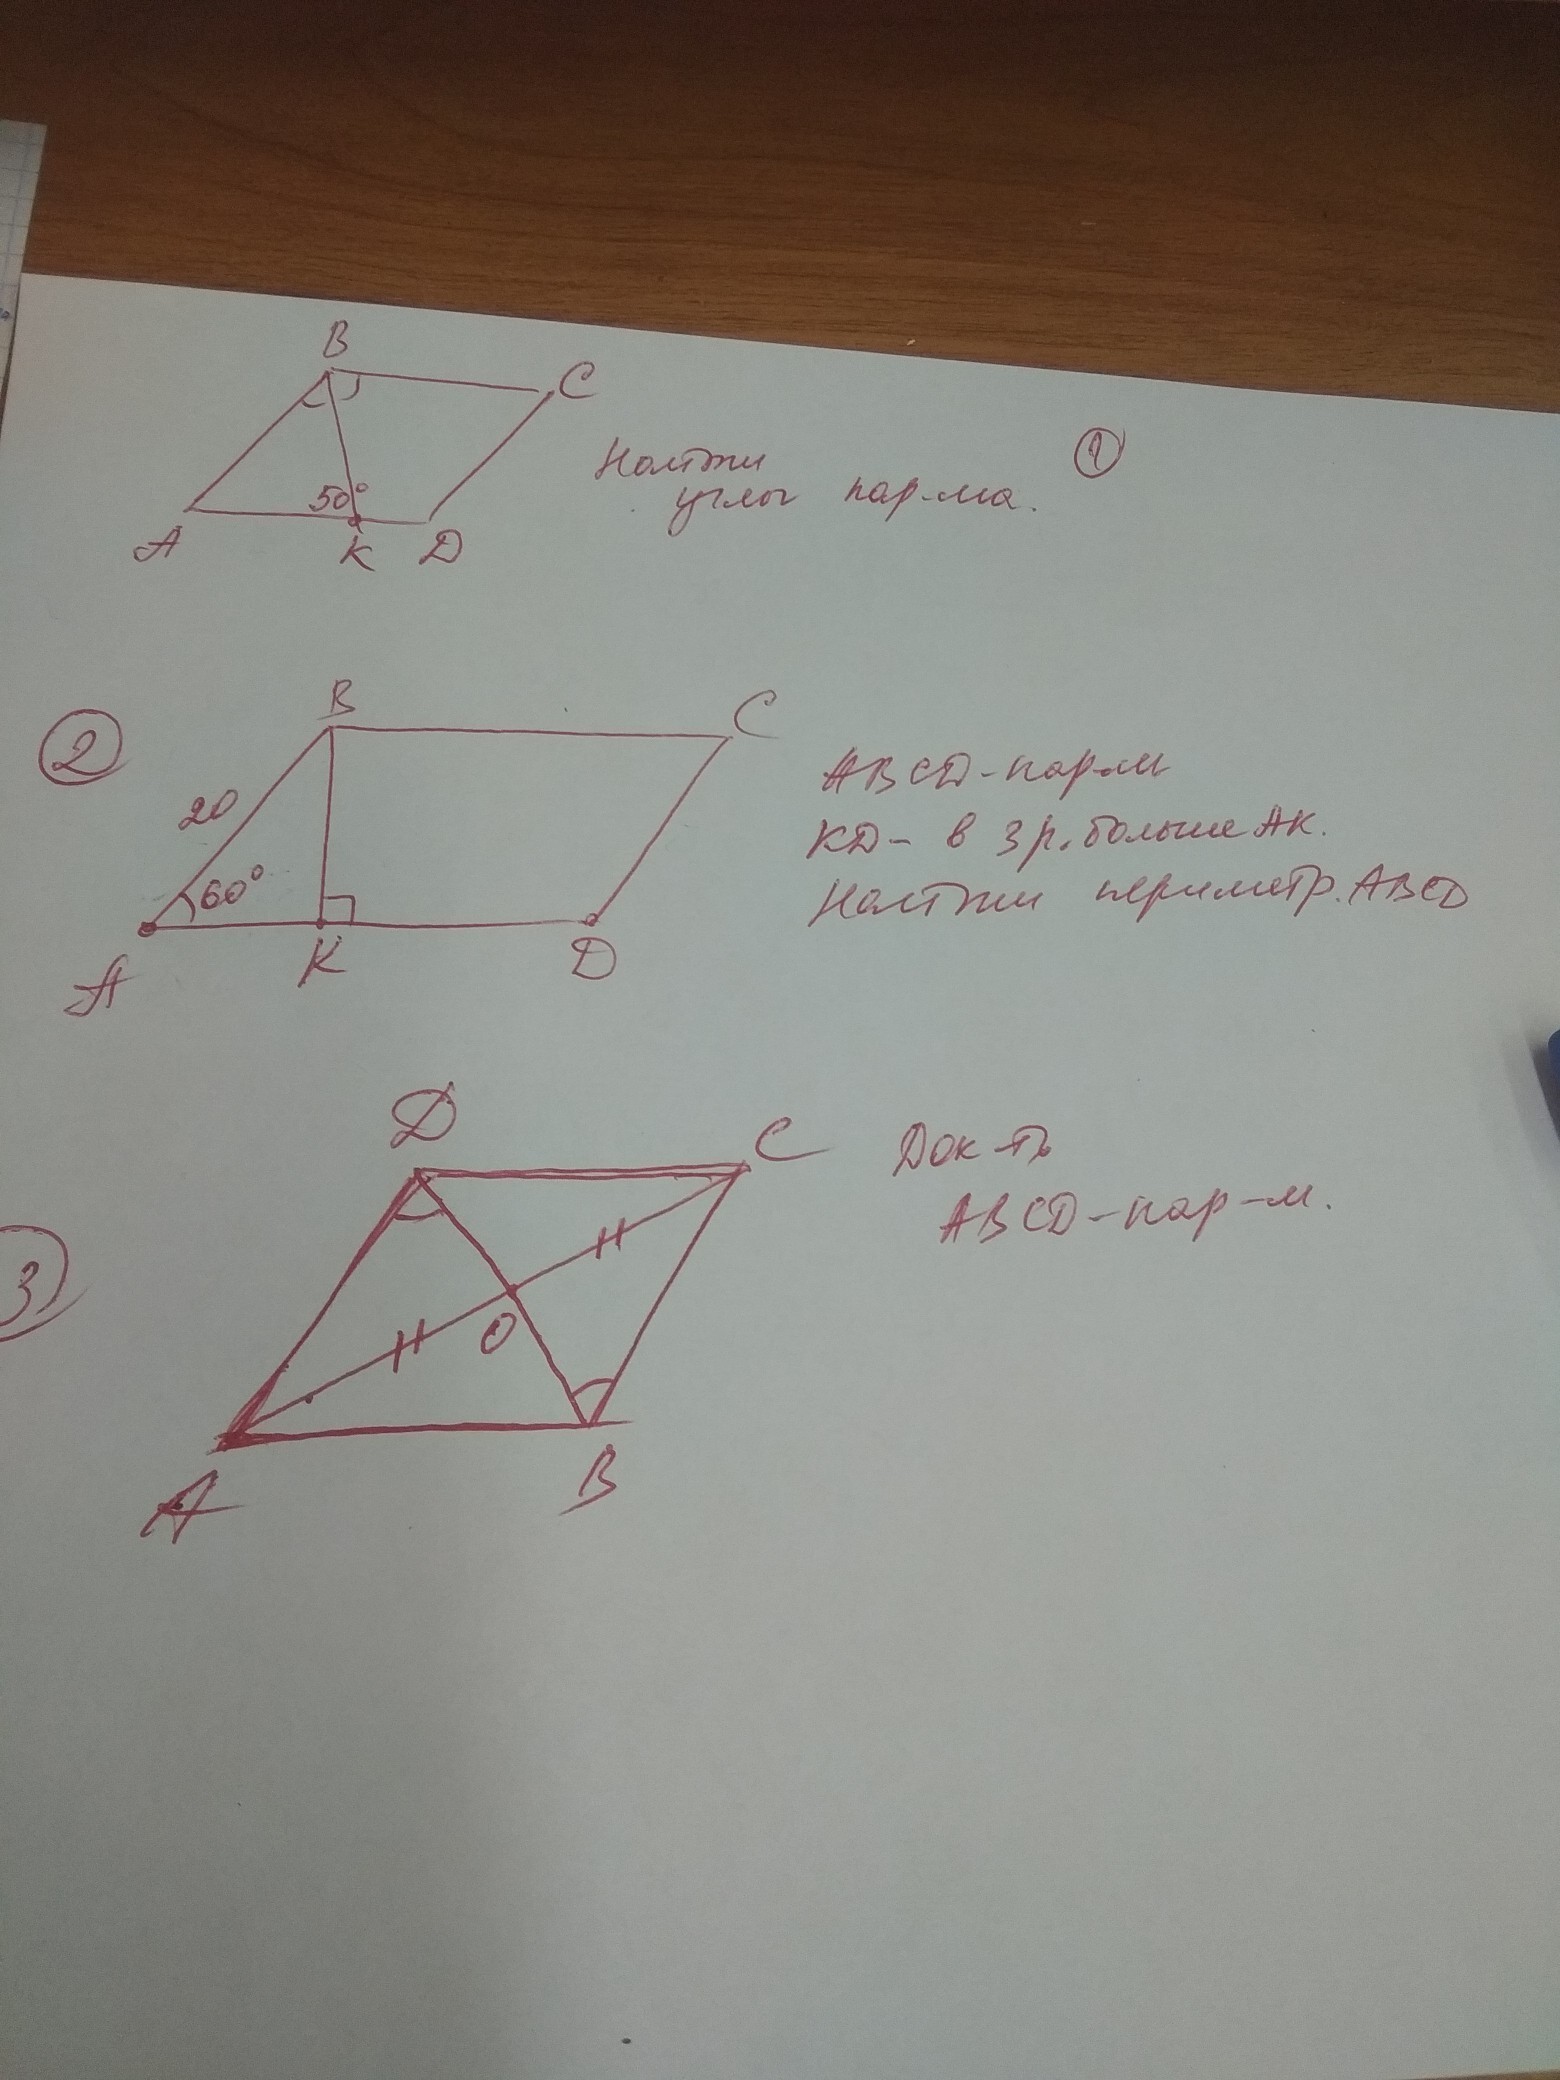 B
C
Найти
углы пар-ма.
1
50°
A
K
D
2
B
C
20
60°
A
K
D
ABCD-пар-м
KD- в 3 р. больше AK.
Найти периметр. ABCD
3
D
C
O
A
B
Док-ть
ABCD-пар-м.